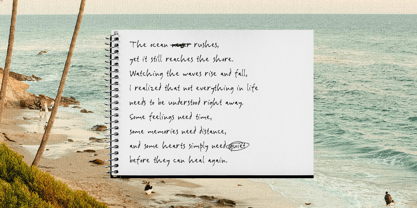 The ocean never rushes,
yet it still reaches the shore.
Watching the waves rise and fall,
I realized that not everything in life
needs to be understood right away.
Some feelings need time,
some memories need distance,
and some hearts simply need quiet
before they can heal again.